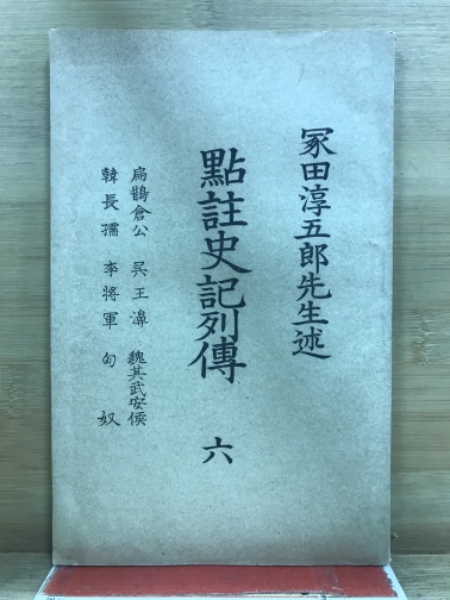 冢田淳五郎先生述
點註史記列傳 六
扁鵲倉公 吳王濞 魏其武安侯
韓長孺 李將軍 匈奴